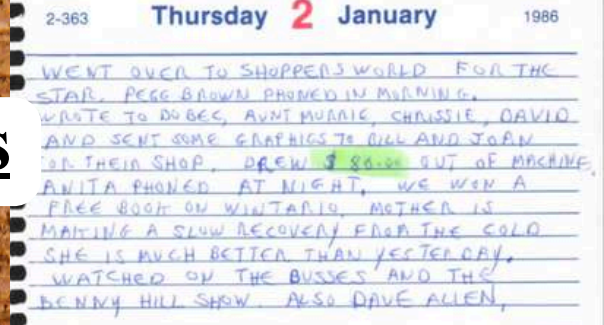 2-363 Thursday 2 January 1986
WENT OVER TO SHOPPERS WORLD FOR THE
STAR. PEGG BROWN PHONED IN MORNING.
WROTE TO DO BEC, AUNT MURRIE, CHRISSIE, DAVID
AND SENT SOME GRAPHICS TO BILL AND JOAN
FOR THEIR SHOP. DREW $80.00 OUT OF MACHINE.
ANITA PHONED AT NIGHT, WE WON A
FREE BOOK ON WINTARIO. MOTHER IS
MAKING A SLOW RECOVERY FROM THE COLD
SHE IS MUCH BETTER THAN YESTERDAY.
WATCHED ON THE BUSSES AND THE
BENNY HILL SHOW. ALSO DAVE ALLEN,
S